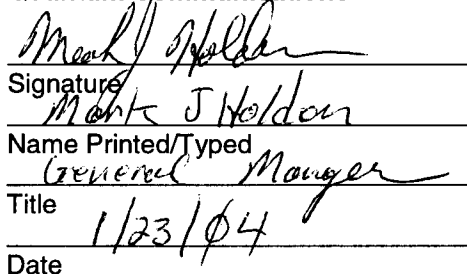 Mark J Holdon
Signature
Mark J Holdon
Name Printed/Typed
General Manger
Title
1/23/04
Date